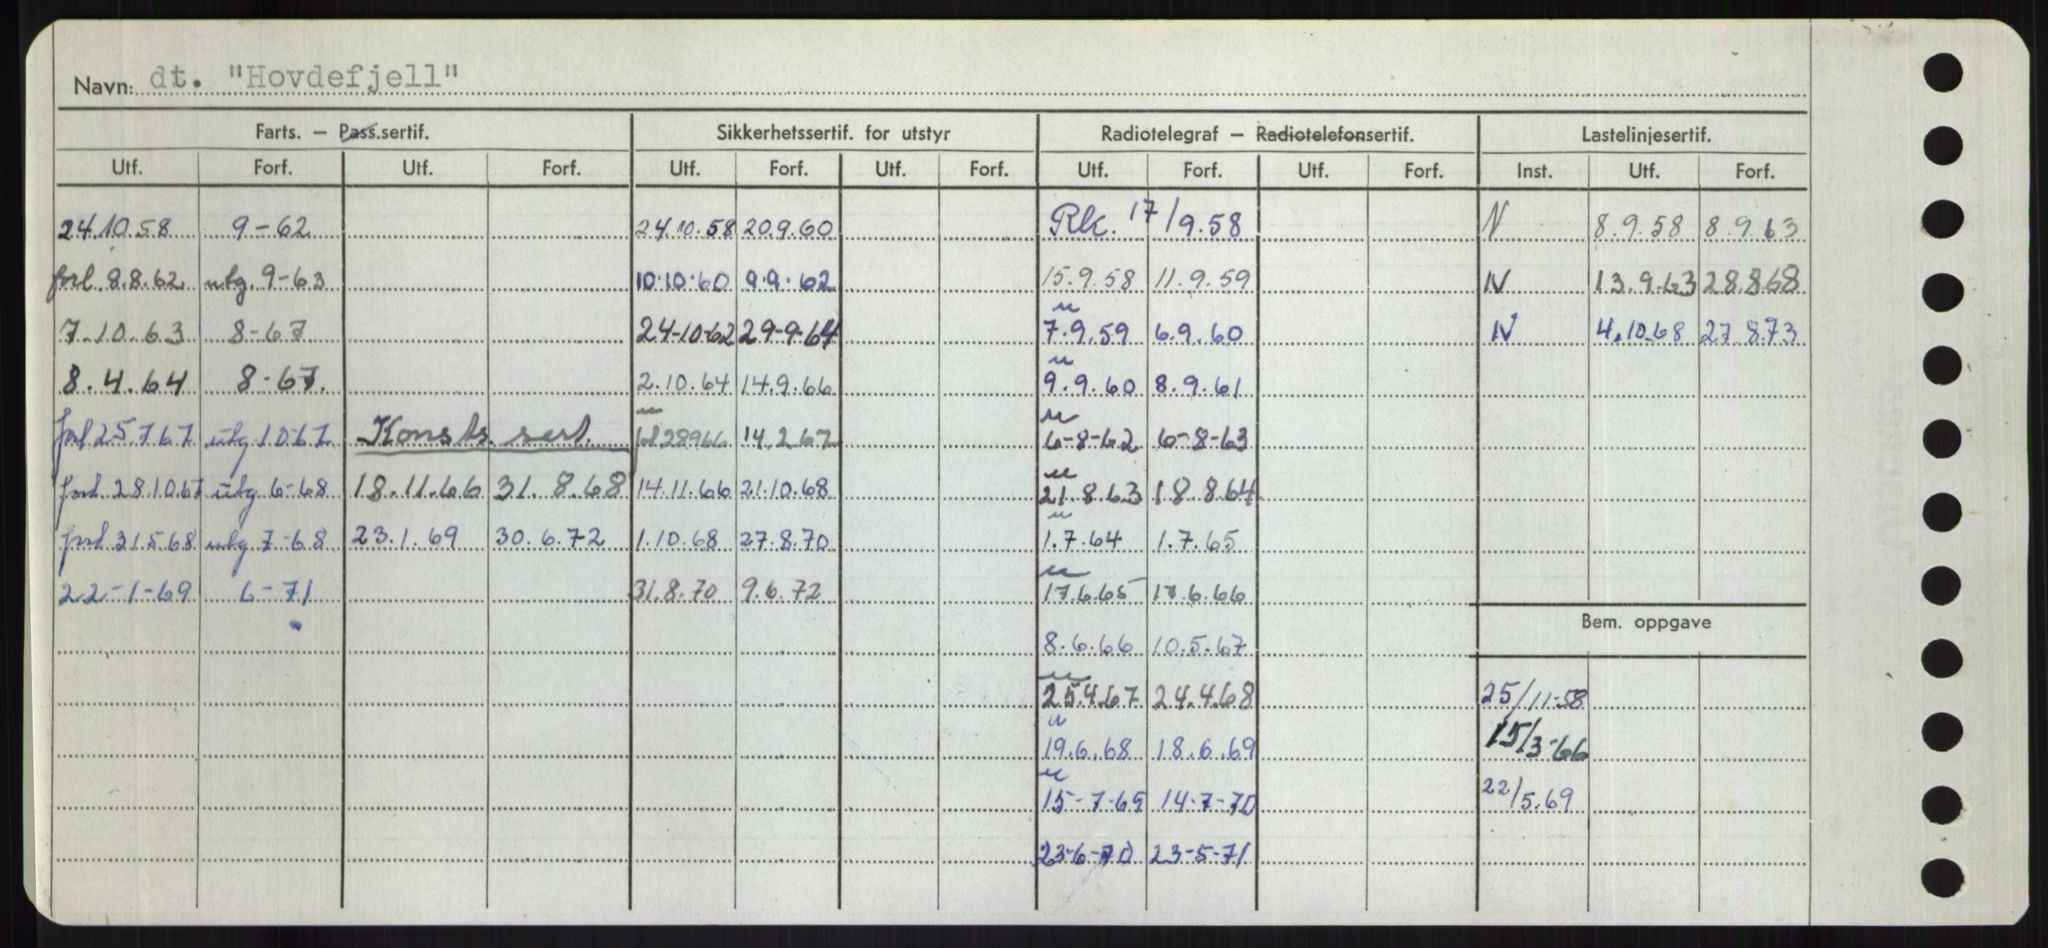 Navn: dt. "Hovdefjell"
Farts. — Pass.sertif. Sikkerhetssertif. for utstyr Radiotelegraf — Radiotelefonsertif. Lastelinjesertif.
Utf. Forf. Utf. Forf. Utf. Forf. Utf. Forf. Utf. Forf. Utf. Forf. Inst. Utf. Forf.
24.10.58 9-62 24.10.58 20.9.60 Rk. 17/9.58 N 8.9.58 8.9.63
forl 8.8.62 utg. 9-63 10.10.60 9.9.62 15.9.58 11.9.59 N 13.9.63 28.8.68
7.10.63 8-67 24-10-62 29-9-64 7.9.59 6.9.60 N 4.10.68 27.8.73
8.4.64 8-67. 2.10.64 14.9.66 9.9.60 8.9.61
forl 25.7.67 utg 10.67 Konsts. sert. fl 28966 14.2.67 6-8-62 6-8-63
forl. 28.10.67 utg 6-68 18.11.66 31.8.68 14.11.66 21.10.68 21.8.63 18.8.64
forl 31.5.68 utg 7-68 23.1.69 30.6.72 1.10.68 27.8.70 1.7.64 1.7.65
22-1-69 6-71 31.8.70 9.6.72 17.6.65 17.6.66
Bem. oppgave
8.6.66 10.5.67
25.4.67 24.4.68 25/11-58
19.6.68 18.6.69 15/3-66
15-7-69 14-7-70 22/5.69
23-6-70 23-5-71